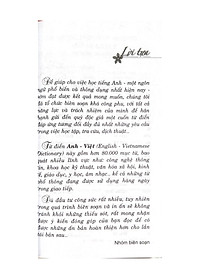 Lời tựa
Để giúp cho việc học tiếng Anh - một ngôn
ngữ phổ biến và thông dụng nhất hiện nay -
sớm đạt được kết quả mong muốn, chúng tôi
đã tổ chức biên soạn khá công phu, với tất cả
năng lực và trách nhiệm của mình để hân
hạnh gửi đến quý độc giả một cuốn từ điển
đáp ứng tương đối đầy đủ nhất những yêu cầu
trong việc học tập, tra cứu, dịch thuật...
Từ điển Anh - Việt (English - Vietnamese
Dictionary) này gồm hơn 80.000 mục từ, bao
quát nhiều lĩnh vực như: công nghệ thông
tin, khoa học kỹ thuật, văn hóa xã hội, kinh
tế, giáo dục, y học, âm nhạc... kể cả những từ
phổ thông đang được sử dụng hàng ngày
trong giao tiếp.
Dù đầu tư công sức rất nhiều, tuy nhiên
trong quá trình biên soạn và in ấn sẽ không
tránh khỏi những thiếu sót, rất mong nhận
được ý kiến đóng góp của quý bạn đọc, để
chúng tôi hoàn chỉnh tốt hơn cho những lần
tái bản sau...
Nhóm biên soạn